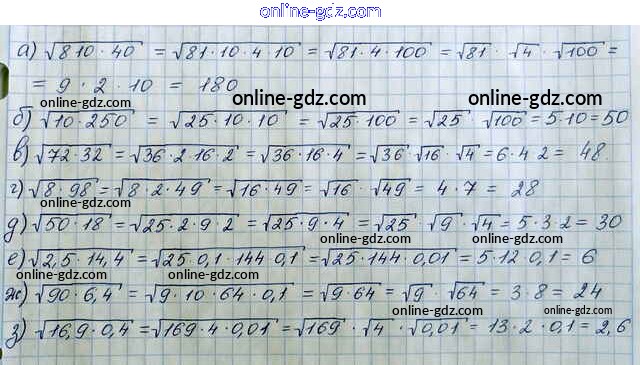 online-gdz.com
а) √810·40 = √81·10·4·10 = √81·4·100 = √81 · √4 · √100 =
= 9 · 2 · 10 = 180
online-gdz.com online-gdz.com online-gdz.com
б) √10·250 = √25·10·10 = √25·100 = √25 · √100 = 5·10 = 50
online-gdz.com
в) √72·32 = √36·2·16·2 = √36·16·4 = √36 · √16 · √4 = 6·4 2 = 48.
online-gdz.com
г) √8·98 = √8·2·49 = √16·49 = √16 · √49 = 4·7 = 28
online-gdz.com
д) √50·18 = √25·2·9·2 = √25·9·4 = √25 · √9 · √4 = 5·3·2 = 30
online-gdz.com online-gdz.com
е) √2,5·14,4 = √25·0,1·144·0,1 = √25·144·0,01 = 5·12 0,1 = 6
online-gdz.com online-gdz.com
ж) √90·6,4 = √9·10·64·0,1 = √9·64 = √9 · √64 = 3·8 = 24
online-gdz.com online-gdz.com online-gdz.com
з) √16,9·0,4 = √169·4·0,01 = √169 · √4 · √0,01 = 13·2·0,1 = 2,6